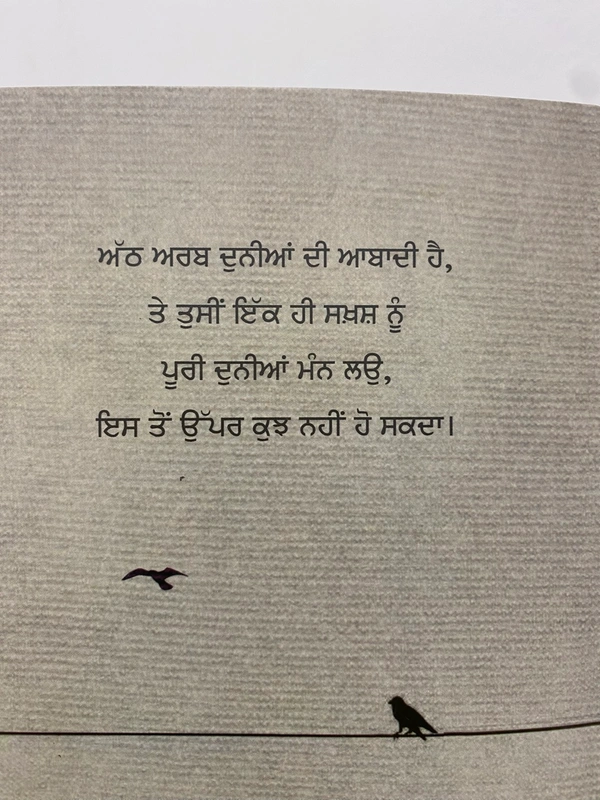 ਅੱਠ ਅਰਬ ਦੁਨੀਆਂ ਦੀ ਆਬਾਦੀ ਹੈ,
ਤੇ ਤੁਸੀਂ ਇੱਕ ਹੀ ਸਖ਼ਸ਼ ਨੂੰ
ਪੂਰੀ ਦੁਨੀਆਂ ਮੰਨ ਲਉ,
ਇਸ ਤੋਂ ਉੱਪਰ ਕੁਝ ਨਹੀਂ ਹੋ ਸਕਦਾ।